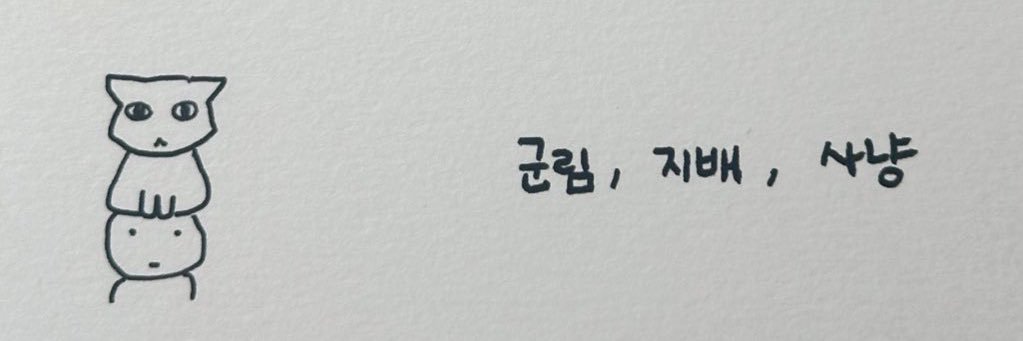 군림, 지배, 사냥